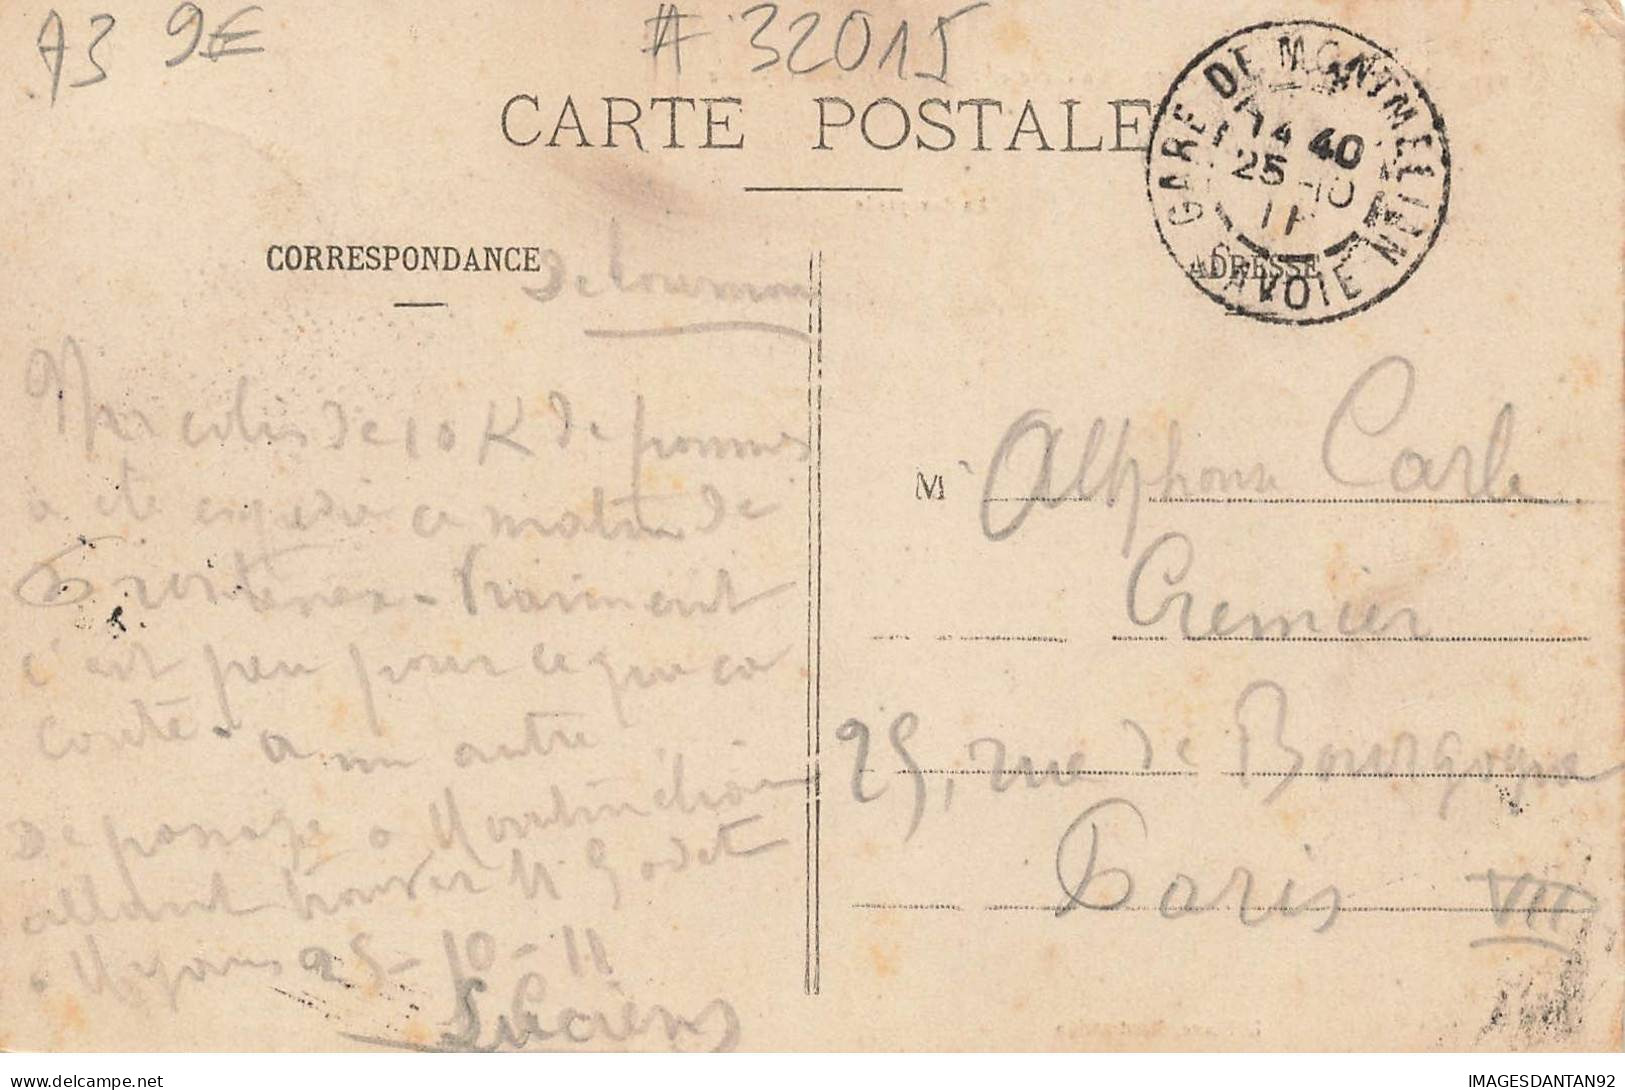 A3 9€ # 32015
CARTE POSTALE
GARE DE MONTMELIAN
14 40
25 - 10
11
SAVOIE
CORRESPONDANCE
ADRESSE
colis de 10 K de pommes
a été expédié ce matin de
Frontenex - Vraiment
c'est peu pour ce que ça
coûte - a un autre
De passage a Montmélian
allant trouver M Godet
a Myans 25-10-11
Lucien
M Alphonse Carle
Cremier
25, rue de Bourgogne
Paris VII
delcampe.net
IMAGESDANTAN92